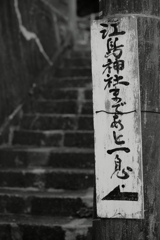 江島神社まであと一息